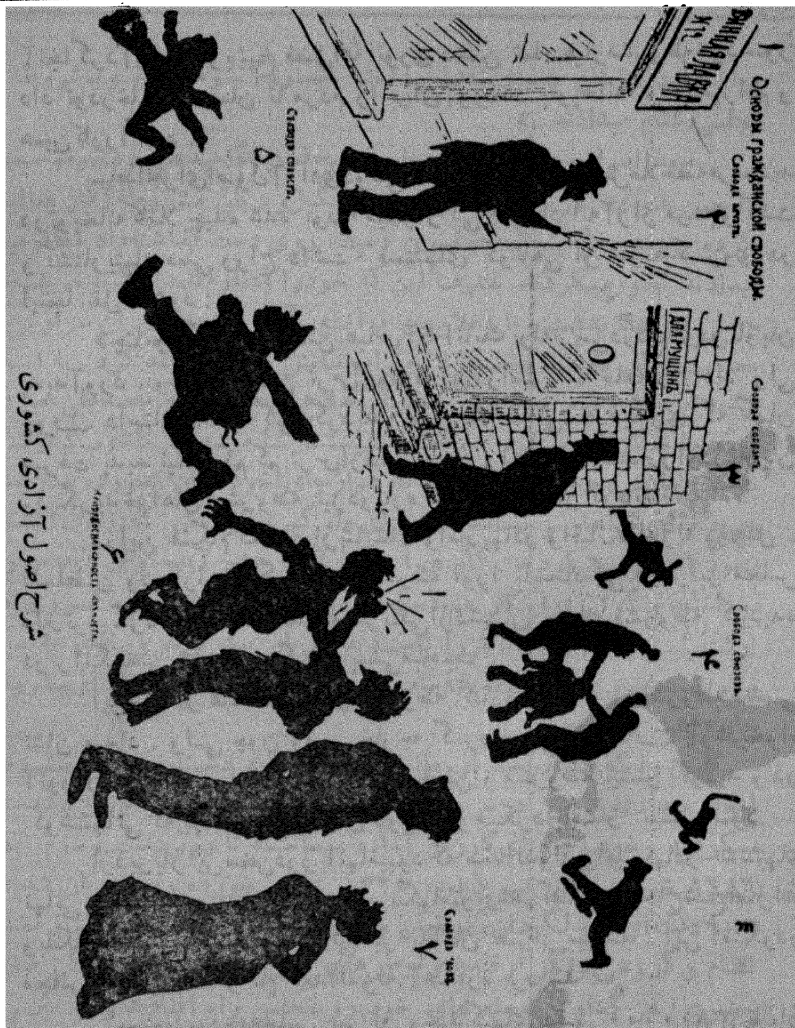 ۱
ВИННАЯ ЛАВКА
Основы гражданской свободы.
Свобода печати.
۲
Свобода собраній.
۳
ДЛЯ МУЩИНЪ
Свобода союзовъ.
۴
Свобода совести.
۵
Неприкосновенность личности.
۶
Свобода
۷
شرح اصول آزادی کشوری